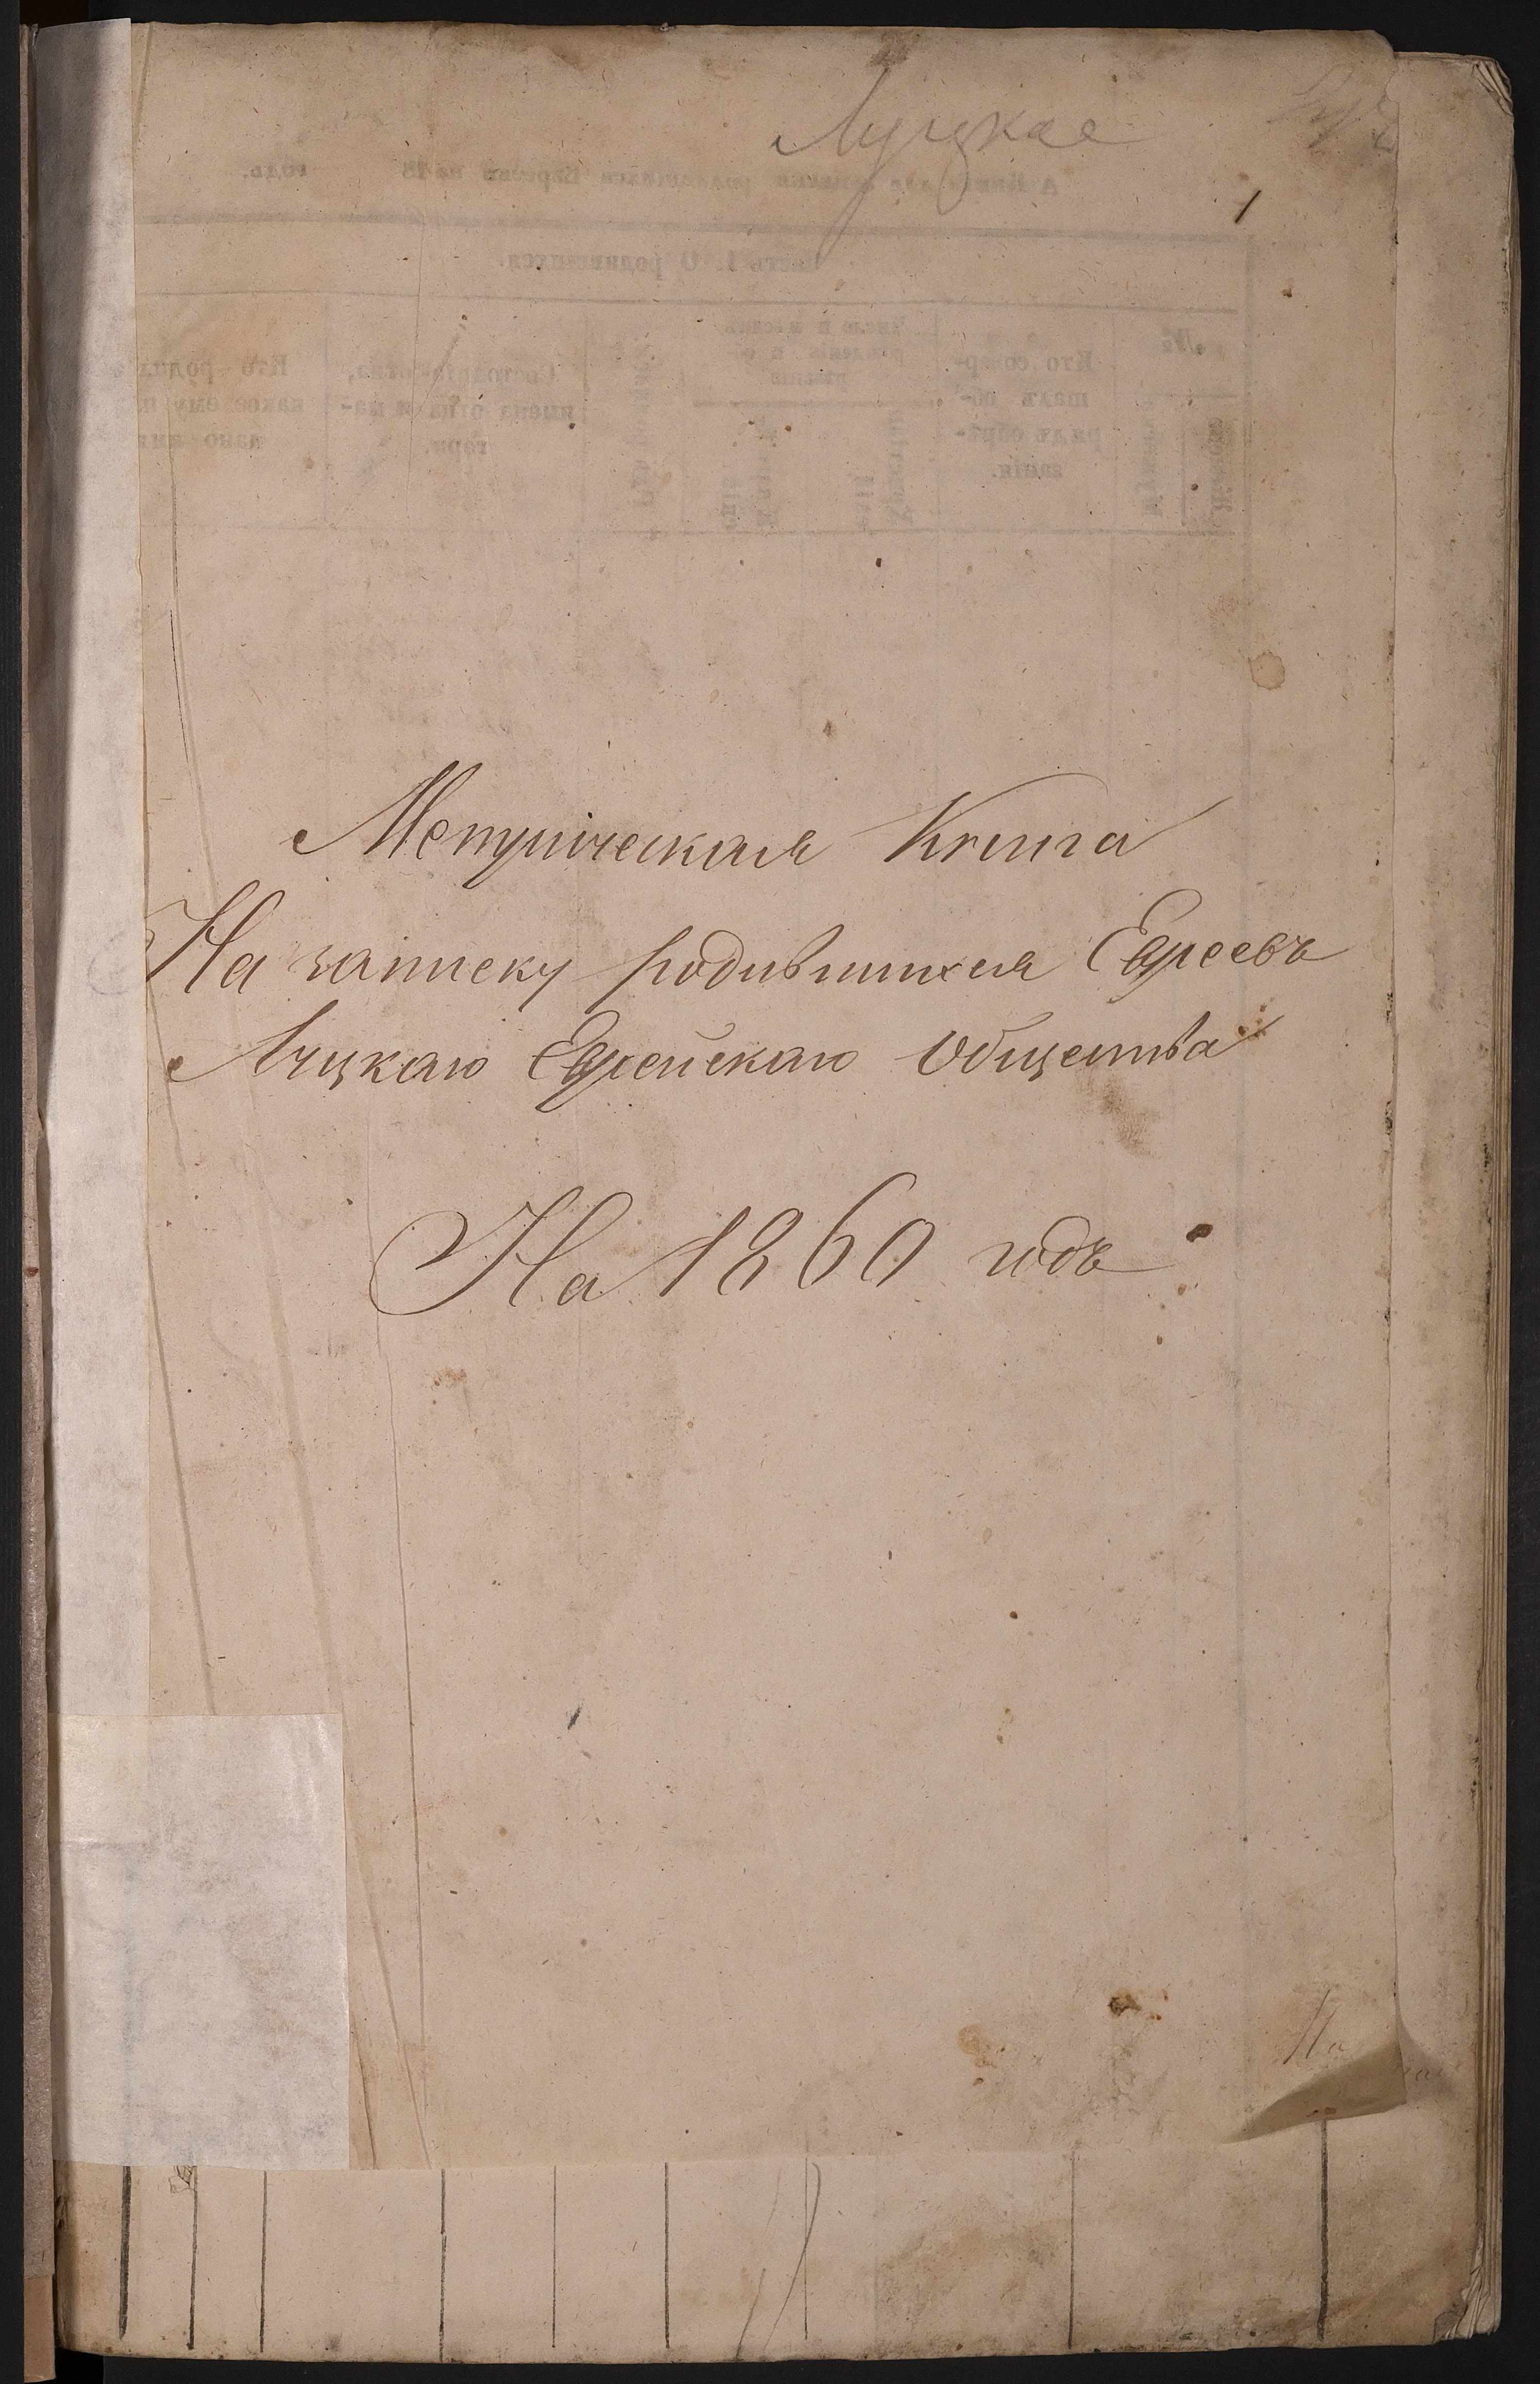 Луцкое
1
Метрическая Книга
На записку родившихся Евреевъ
Луцкаго Еврейскаго Общества
На 1860 годъ
На